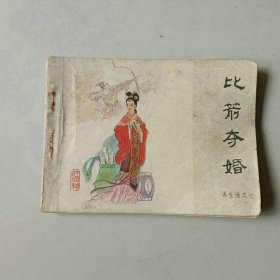 比箭夺婚
再生缘之一